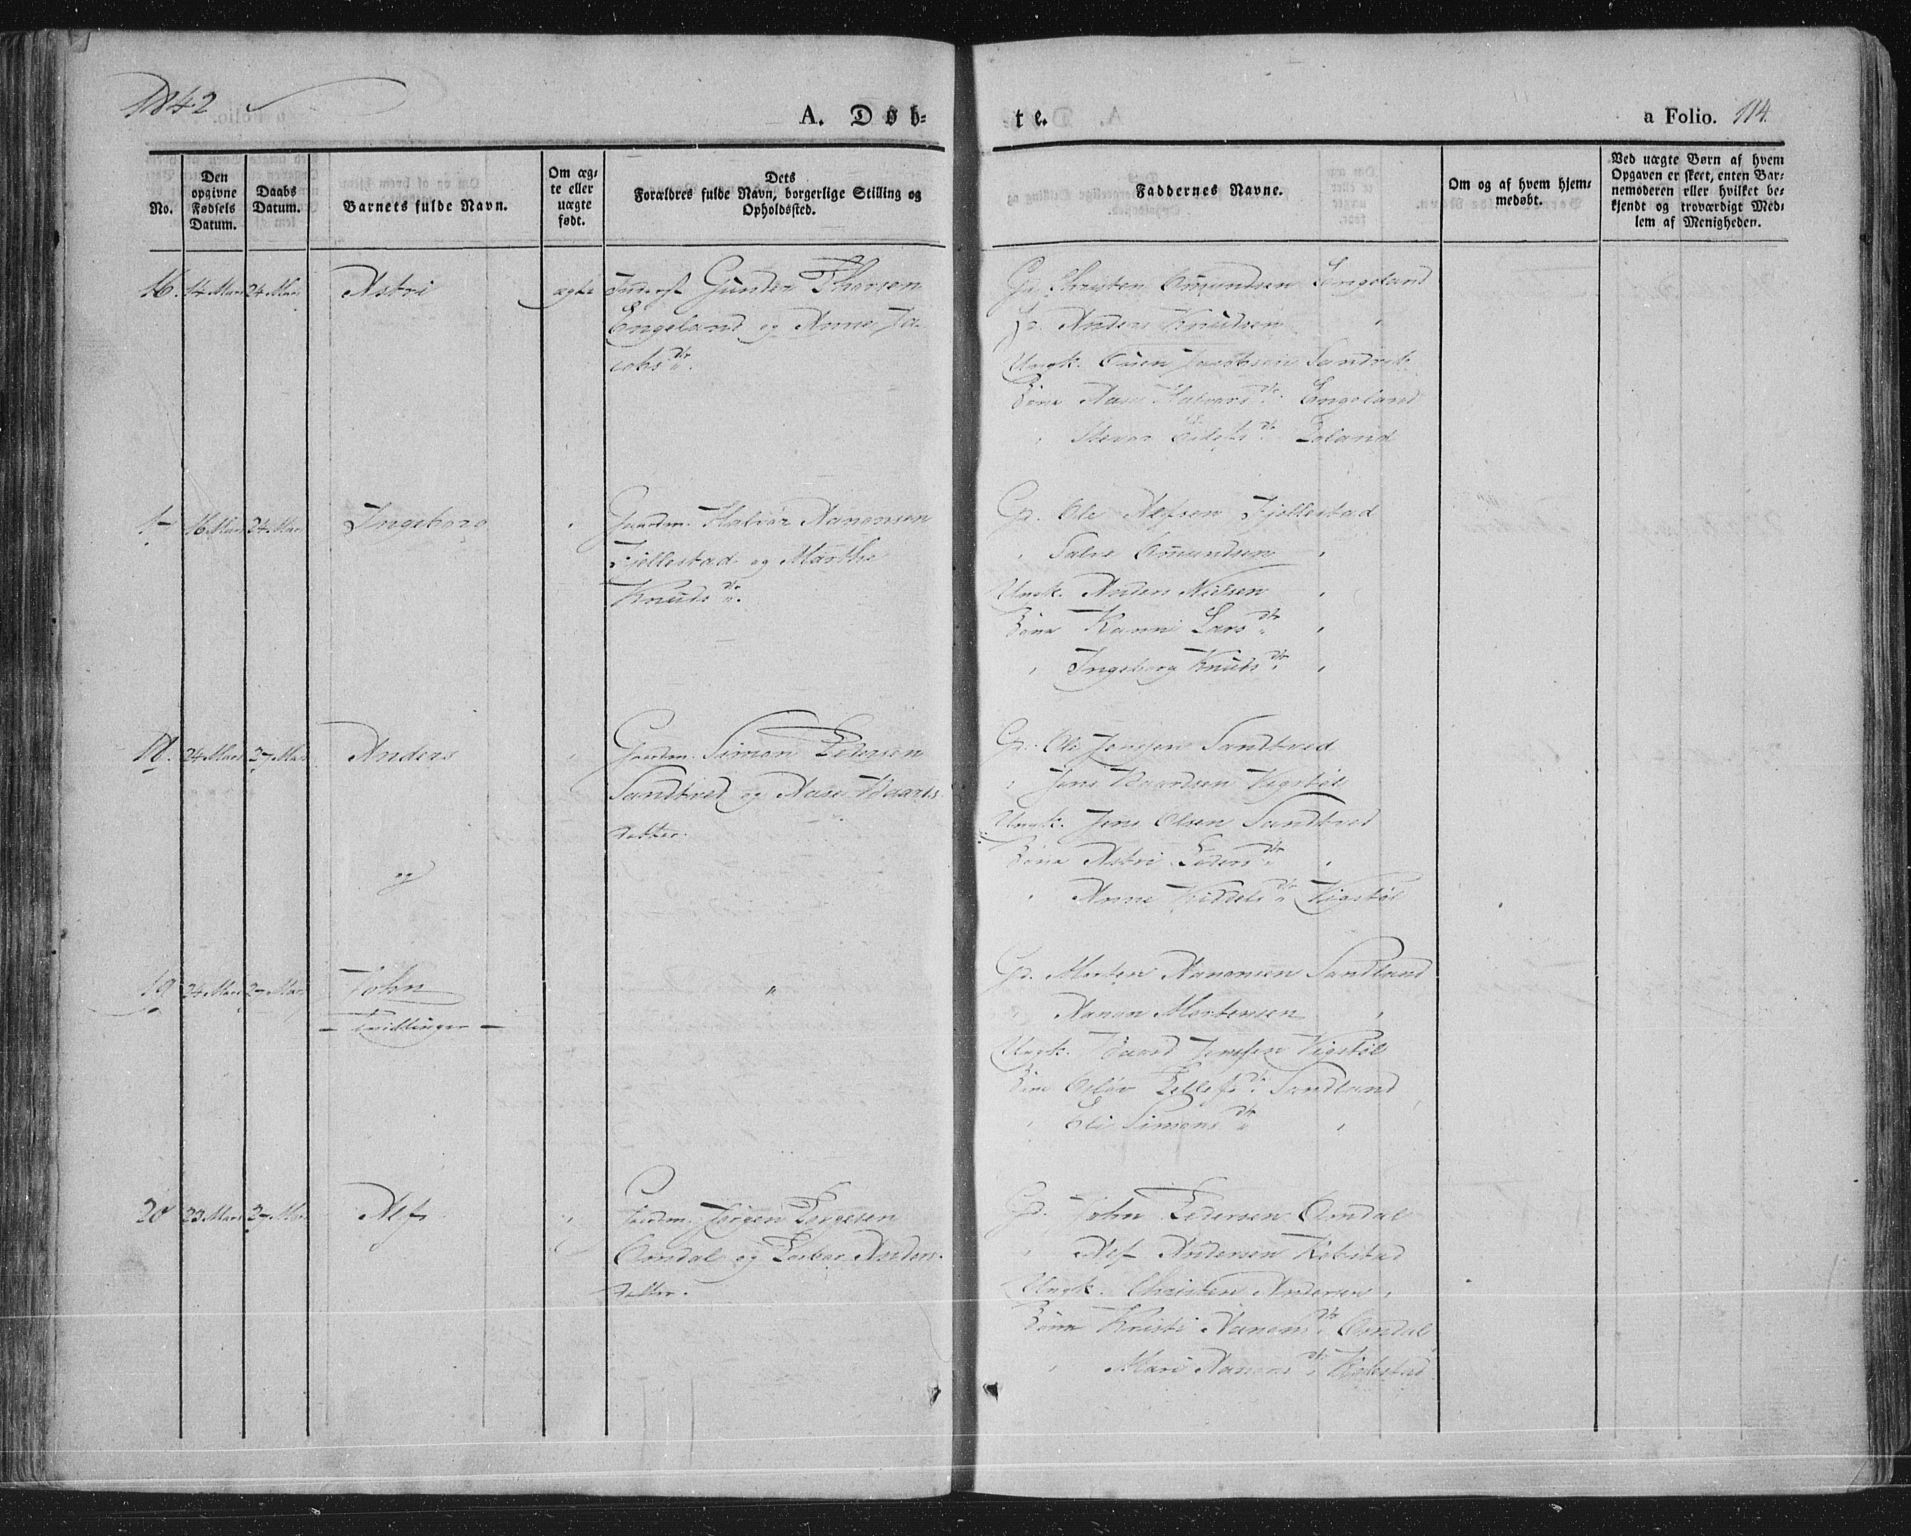 1842
A. Døb-
te.
a Folio. 114.
No.
Den opgivne Fødsels Datum.
Daabs Datum.
Barnets fulde Navn.
Om ægte eller uægte født.
Dets
Forældres fulde Navn, borgerlige Stilling og Opholdssted.
Faddernes Navne.
Om og af hvem hjemmedøbt.
Ved uægte Børn af hvem Opgaven er skeet, enten Barnemoderen eller hvilket bekjendt og troværdigt Medlem af Menigheden.
16. 14 Mars 24 Mars Astri ægte Inderst Gunder Thorsen
Engeland og Anne Ja-
cobsdr.
Gd. Christen Omundsen Engeland
Gd. Anders Knudsen "
Ungk. Jacobsen Sandved
Kone Aase Halvorsdr. Engeland
" Eilefsdr. Eoland
17 16 Mars 24 Mars Ingeborg " Gaardm. Halvor Aanonsen
Fjellestad og Marthe
Knudsdr.
Gd. Ole Alefsen Fjellestad
" Salve Omundsen "
Ungk. Anders Nielsen "
Kone Karen Larsdr. "
" Ingeborg Knudsdr. "
18. 24 Mars 27 Mars Anders " Gaardm. Simon Pedersen
Sandved og Aase Baards-
datter.
og
Gd. Ole Jensen Sandved
" Jens Baardsen Vigstøl
Ungk. Jens Olsen Sandved
Kone Astri Pedersdr. "
" Anne Kiddelsdr. Vigstøl
19 24 Mars 27 Mars John "
- Tvillinger -
Gd. Morten Aanonsen Sandland
" Aanon Mortensen "
Ungk. Baard Jensen Vigstøl
Kone Tellefsdr. Sandland
" Eli Simonsdr. "
20 23 Mars 27 Mars Alef " Gaardm. Jørgen Tergesen
Omdal og Torbor Anders-
datter.
Gd. John Pedersen Omdal
" Alef Andersen Røbstad
Ungk. Christen Andersen "
Kone Kristi Aanonsdr. Omdal
" Mari Aanonsdr. Røbstad